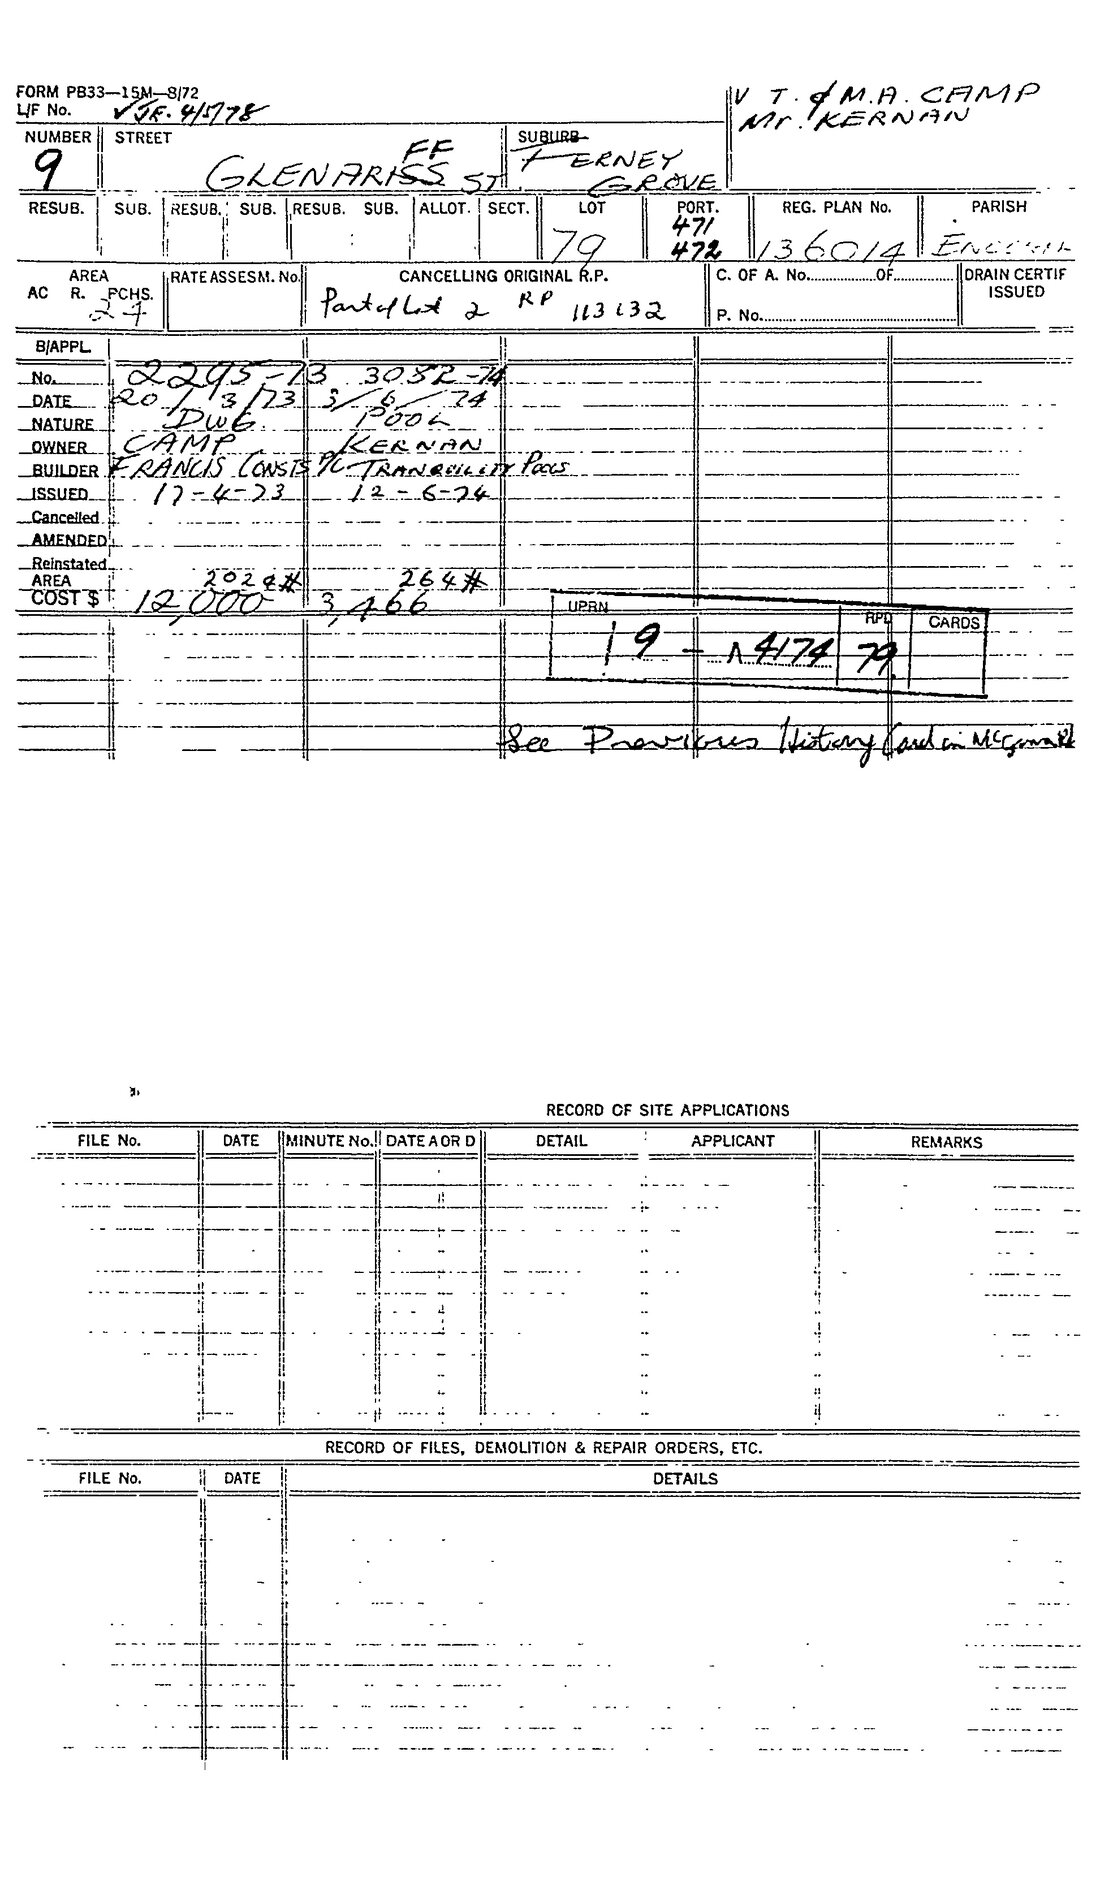 FORM PB33—15M—8/72
L/F No. 4/5/78
V T. & M.A. CAMP
Mr. KERNAN
NUMBER STREET SUBURB
FF
9 GLENARISS ST. FERNEY GROVE
RESUB. SUB. RESUB. SUB. RESUB. SUB. ALLOT. SECT. LOT PORT. REG. PLAN No. PARISH
471
79 472 136014
AREA RATE ASSESM. No. CANCELLING ORIGINAL R.P. C. OF A. No. OF DRAIN CERTIF
AC R. PCHS. ISSUED
24 Part of Lot 2 RP 113132 P. No.
B/APPL.
No. 2295-73 3052-74
DATE 20/3/73 3/6/74
NATURE DWG. POOL
OWNER CAMP KERNAN
BUILDER FRANCIS CONSTS P/L TRANQUILITY POOLS
ISSUED 17-4-73 12-6-74
Cancelled
AMENDED
Reinstated
AREA 2024# 264#
COST $ 12,000 3,466
UPRN RPD CARDS
19 - 4174 79
See Previous History Card in
RECORD OF SITE APPLICATIONS
FILE No. DATE MINUTE No. DATE A OR D DETAIL APPLICANT REMARKS
RECORD OF FILES, DEMOLITION & REPAIR ORDERS, ETC.
FILE No. DATE DETAILS